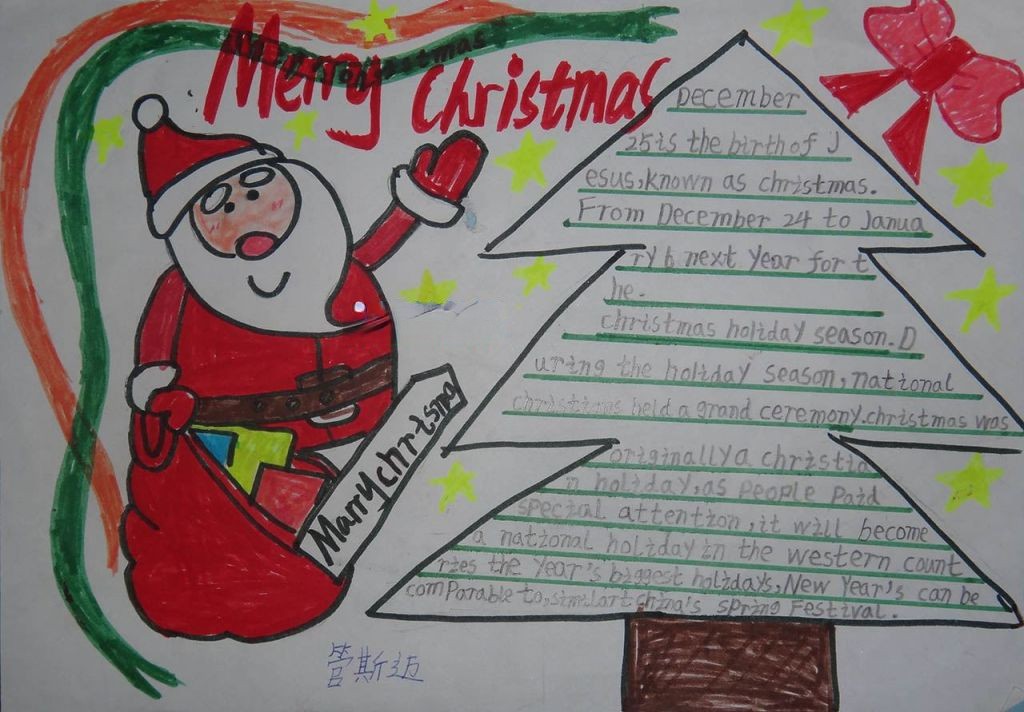 Merry Christmas
December
25 is the birth of J
esus, known as christmas.
From December 24 to Janua
ry 6 next year for t
he.
christmas holiday season. D
uring the holiday season, national
christians held a grand ceremony. christmas was
originally a christia
n holiday, as people paid
special attention, it will become
a national holiday in the western count
ries the year's biggest holidays, New Year's can be
comparable to, similart china's spring Festival.
Marry chrisimg
管斯迈